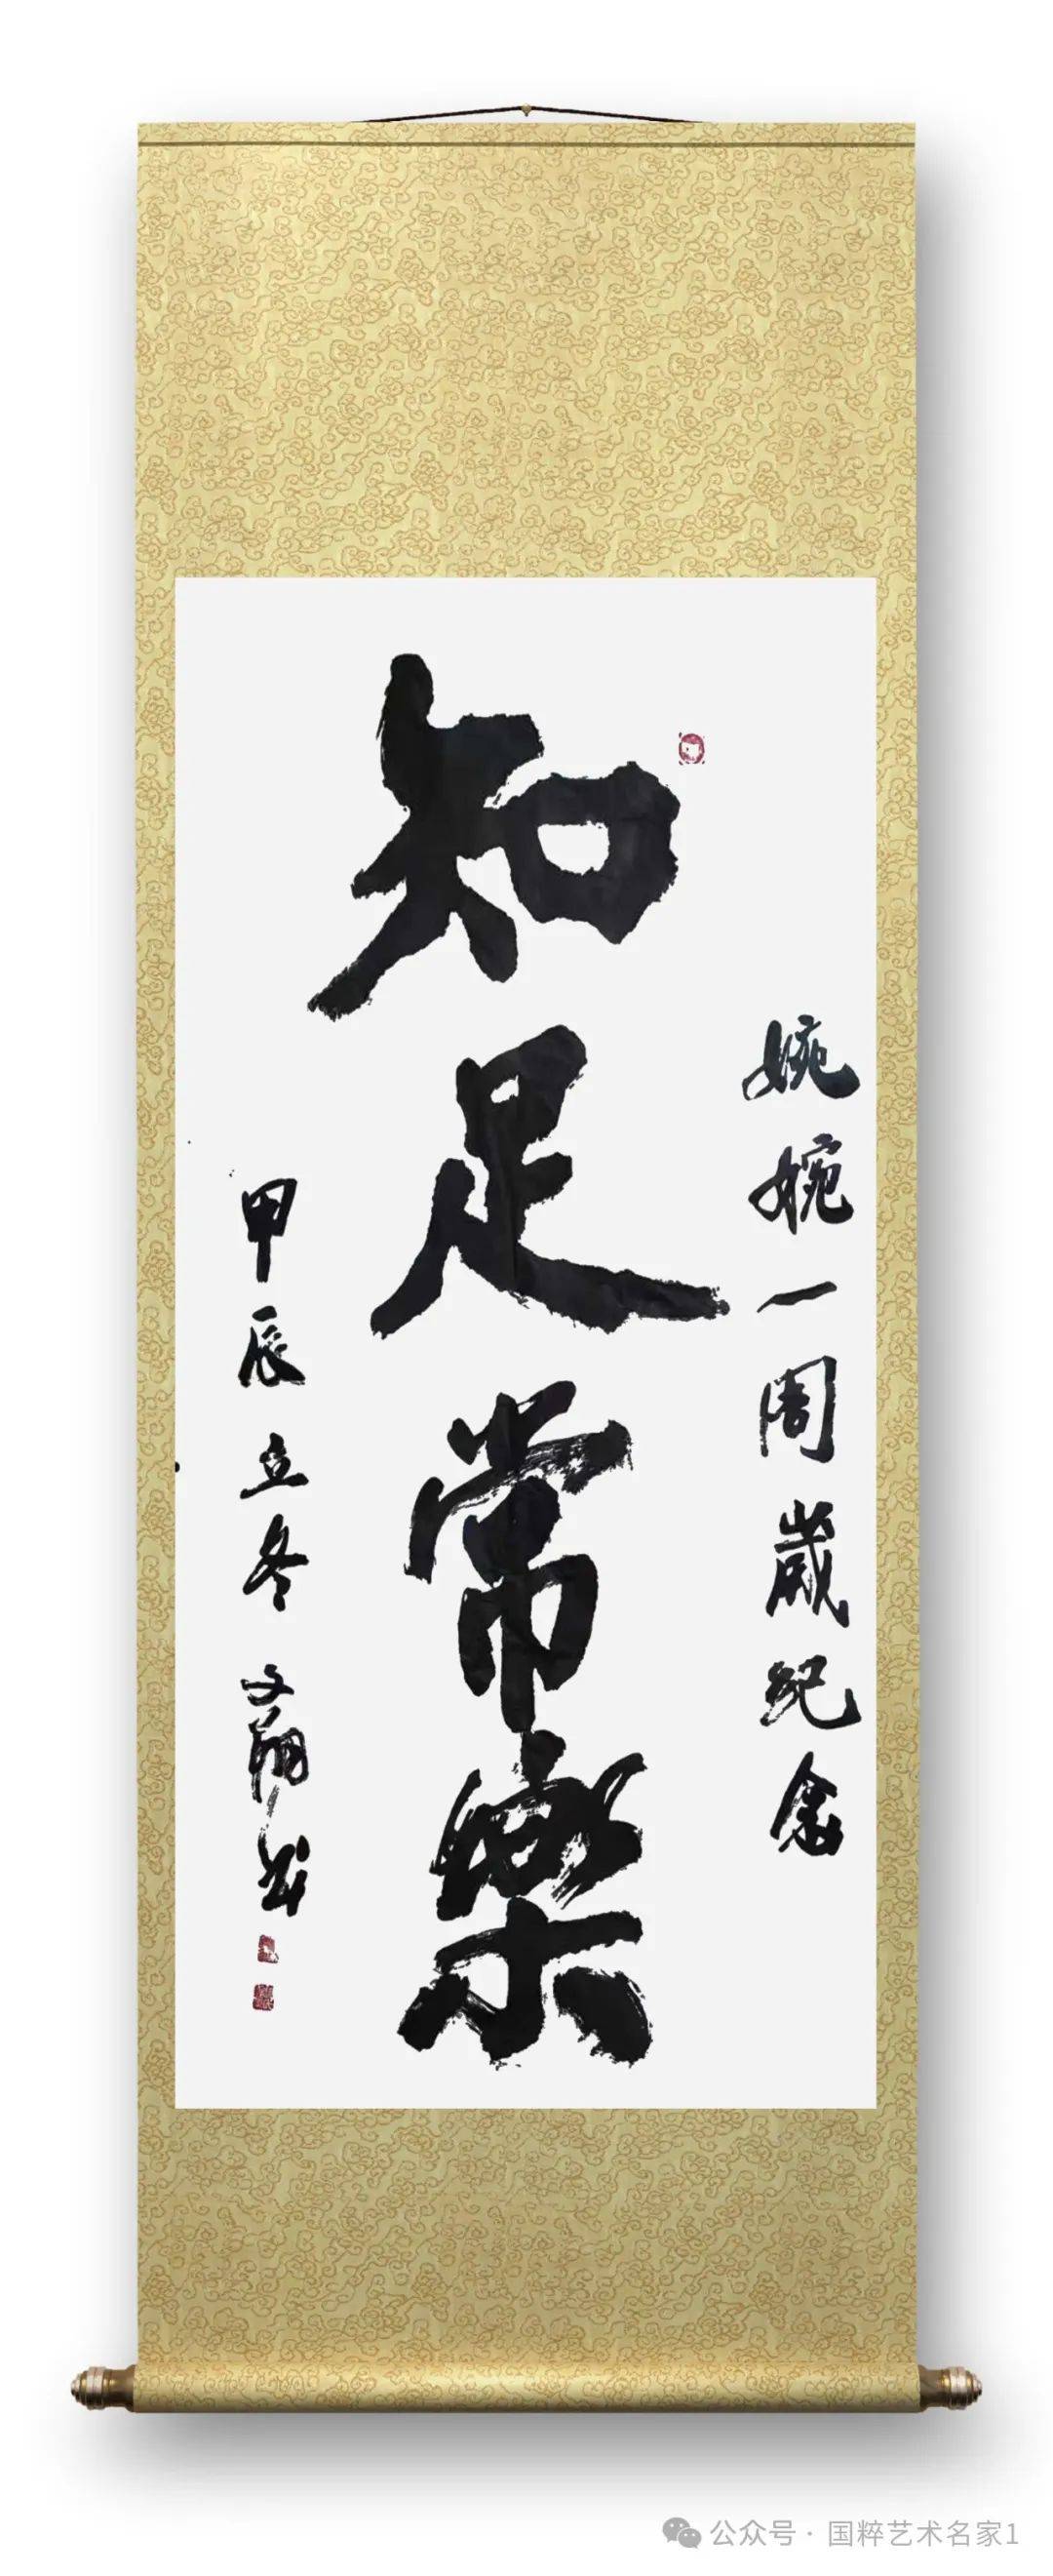 婉婉一周歲纪念
知足常樂
甲辰立冬 文翔
公众号·国粹艺术名家1